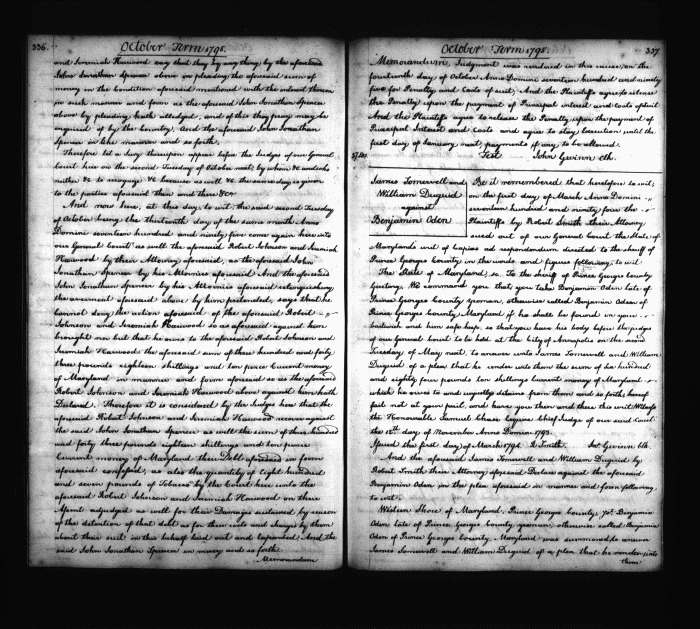 336.
October Term 1795.
and Jeremiah Harwood say that they by any thing by the aforesaid
John Jonathan Spencer above in pleading the aforesaid sum of
money in the Condition aforesaid mentioned with the interest thereon
in such manner and form as the aforesaid John Jonathan Spencer
above by pleading hath alledged, and of this they pray may be
enquired of by the Country, And the aforesaid John Jonathan
Spencer in like manner and so forth.
Therefore let a Jury thereupon appear before the Judges of our General
Court here on the second Tuesday of October next, by whom &c and who
neither &c to recognize &c because as well &c the same day is given
to the parties aforesaid then and there &c
And now here, at this day, to wit, the said second Tuesday
of October being the thirteenth day of the same month Anno
Domini seventeen hundred and ninety five come again here into
our General Court as well the aforesaid Robert Johnson and Jeremiah
Harwood by their Attorney aforesaid, as the aforesaid John
Jonathan Spencer by his Attornies aforesaid And the aforesaid
John Jonathan Spencer by his Attornies aforesaid relinquishing
the averment aforesaid above by him pretended, says that he
cannot deny the action aforesaid of the aforesaid Robert
Johnson and Jeremiah Harwood so as aforesaid against him
brought nor but that he owes to the aforesaid Robert Johnson and
Jeremiah Harwood the aforesaid sum of three hundred and forty
three pounds eighteen shillings and ten pence Current money
of Maryland in manner and form aforesaid so as the aforesaid
Robert Johnson and Jeremiah Harwood above against him hath
Declared. Therefore it is considered by the Judges here that the
aforesaid Robert Johnson and Jeremiah Harwood recover against
the said John Jonathan Spencer as well the sum of three hundred
and forty three pounds eighteen shillings and ten pence
Current money of Maryland their Debt aforesaid in form
aforesaid confessed, as also the quantity of Eight hundred
and seven pounds of Tobacco by the Court here unto the
aforesaid Robert Johnson and Jeremiah Harwood on their
Assent adjudged as well for their Damages sustained by reason
of the detention of that debt as for their costs and charges by them
about their suit in this behalf laid out and expended And the
said John Jonathan Spencer in mercy and so forth.
Memorandum
October Term 1795.
337
Memorandum, Judgment was rendered in this cause, on the
fourteenth day of October Anno Domini seventeen hundred and ninety
five for Penalty and Costs of suit; And the Plaintiffs agree to release
the Penalty upon the payment of Principal interest and costs of suit
And the Plaintiffs agree to release the Penalty upon the payment of
Principal Interest and Costs and agree to stay execution until the
first day of January next, payments if any to be allowed.
Test John Gwinn Clk.
James Somervell and
William Dugud
against
Benjamin Oden
Be it remembered that heretofore to wit,
on the first day of March Anno Domini
seventeen hundred and ninety four the
Plaintiffs by Robert Smith their Attorney
sued out of our General Court the State of
Maryland's writ of Capias ad respondendum directed to the sheriff of
Prince Georges County in the words and figures following, to wit
The State of Maryland, sc. To the sheriff of Prince Georges County
Greeting, We command you that you take Benjamin Oden late of
Prince Georges County Yeoman, otherwise called Benjamin Oden of
Prince Georges County Maryland if he shall be found in your
bailiwick and him safe keep, so that you have his body before the Judges
of our General Court to be held at the City of Annapolis on the second
Tuesday of May next, to answer unto James Somervell and William
Dugud of a plea that he render unto them the sum of six hundred
and eighty four pounds ten shillings current money of Maryland
which he owes to and unjustly detains from them and so forth; hereof
fail not at your peril, and have you then and there this writ Witness
the Honourable Samuel Chase Esquire Chief Judge of our said Court
the 12th day of November Anno Domini 1793.
Issued the first day of March 1794 R. Smith. Jno. Gwinn Clk.
And the aforesaid James Somervell and William Dugud by
Robert Smith their Attorney aforesaid Declare against the aforesaid
Benjamin Oden in the plea aforesaid in manner and form following
to wit.
Western Shore of Maryland, Prince Georges County, sc. Benjamin
Oden late of Prince Georges County, yeoman, otherwise called Benjamin
Oden of Prince Georges County Maryland was summoned to answer
James Somervell and William Dugud of a plea that he render unto
them